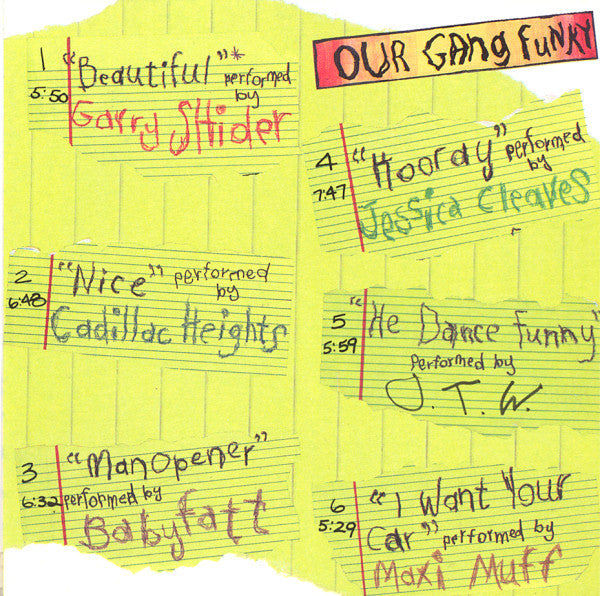 OUR GANG FUNKY
1 "Beautiful"* performed
5:50 by
Garry SHider
2 "Nice" performed
6:48 by
Cadillac Heights
3 "ManOpener"
6:32 performed by
Babyfatt
4 "Hooray" performed
7:47 by
Jessica Cleaves
5 "He Dance funny"
5:59 performed by
J.T.W.
6 "I Want Your
5:29 Car" performed by
Maxi Muff